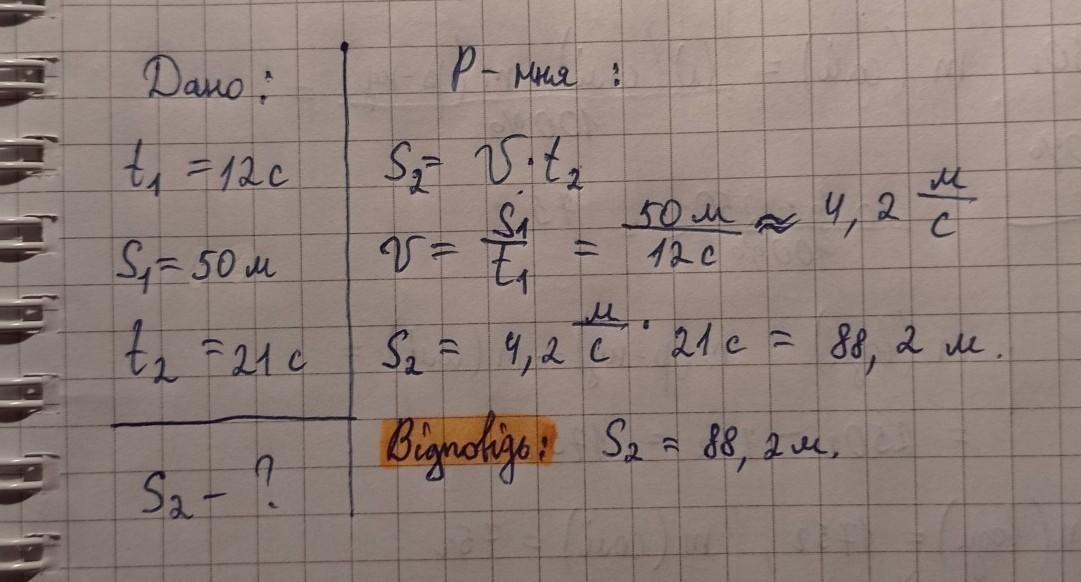 Дано:
t₁ = 12 с
S₁ = 50 м
t₂ = 21 с
S₂ - ?
Р-ння:
S₂ = V · t₂
V = S₁/t₁ = 50 м/12 с ≈ 4,2 м/с
S₂ = 4,2 м/с · 21 с = 88,2 м.
Відповідь: S₂ = 88,2 м.